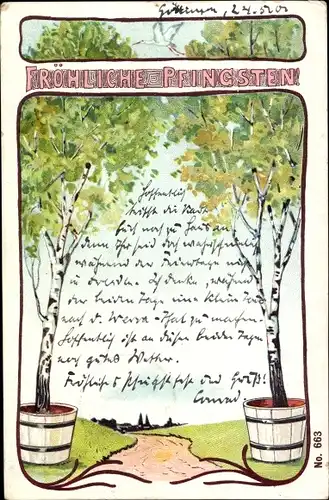 Göttingen, 24.5.01
FRÖHLICHE PFINGSTEN!
Hoffentlich
trifft die Karte
Euch noch zu Hause an
denn Ihr seid doch wahrscheinlich
während der Feiertage
in Dresden. Ich denke, während
der beiden Tage eine kleine Tour
nach d. Werra-Thal zu machen.
Hoffentlich ist an diesen beiden Tagen
noch gutes Wetter.
Fröhliches Pfingstfest und Gruß!
Conrad.
No. 663